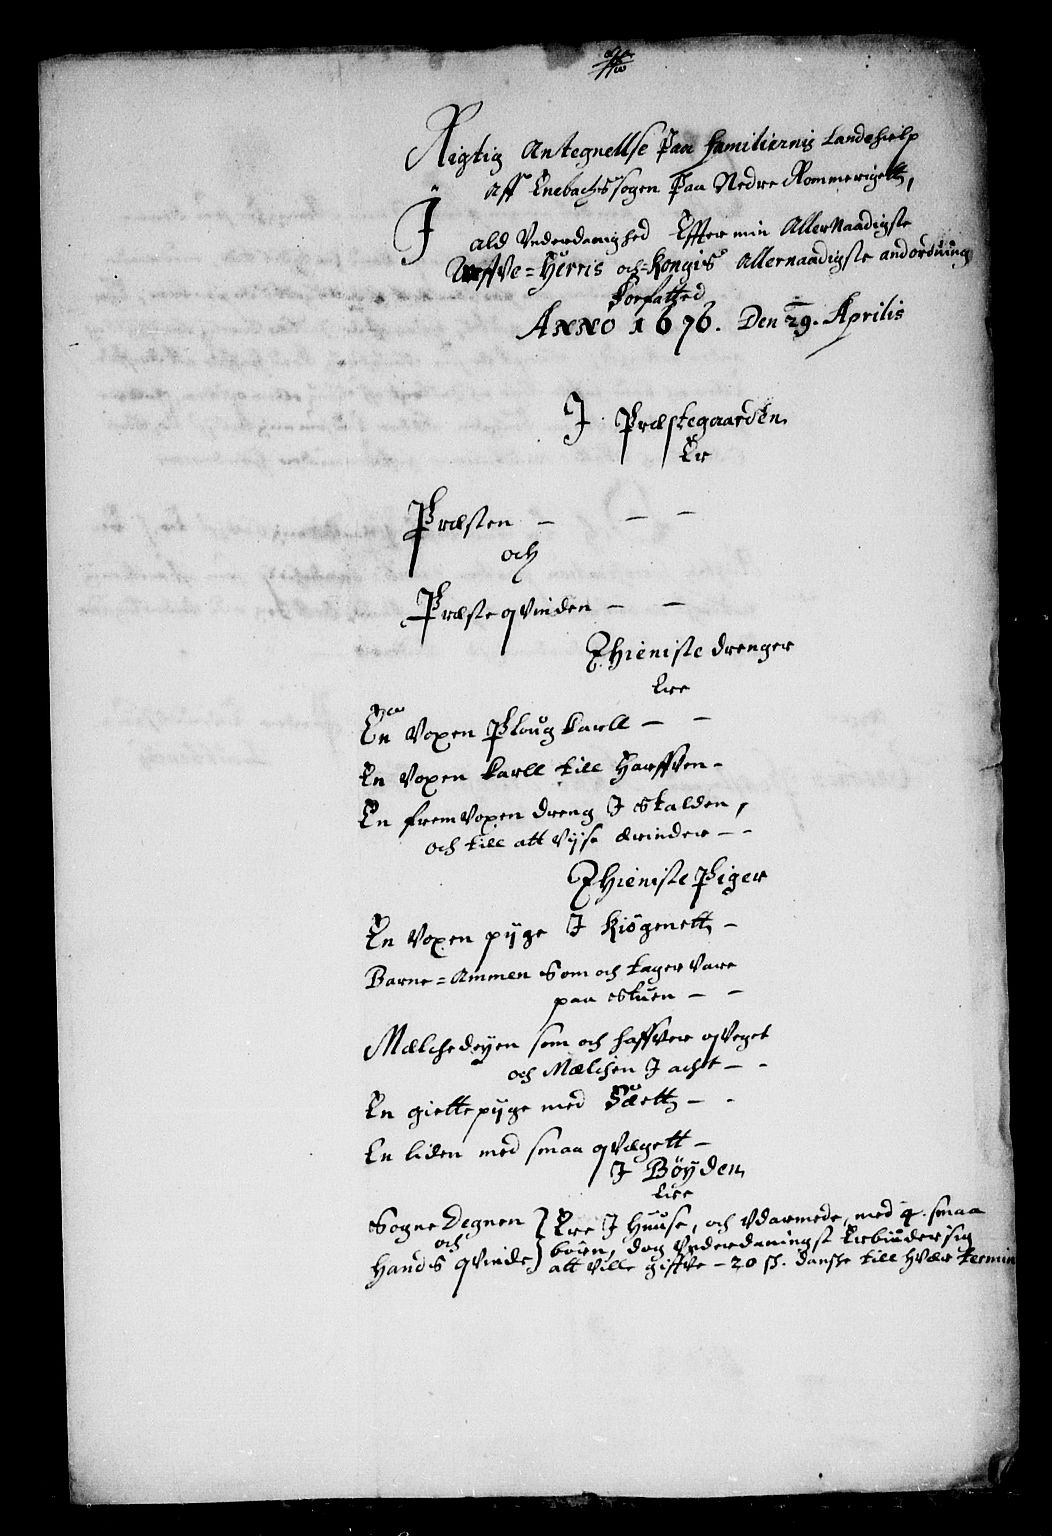 Rigtig Antegnellse Paa familiernis Landehielp
Aff Enebachssogen Paa Nedre Rommerigett,
I
ald Vnderdanighed Effter min AllerNaadigste
Arffve=Herris och Kongis Allernaadigste andordning
Forfatted
ANNO 1676. Den 29. Aprilis
I Præstegaarden
Er
Præsten — — —
och
Præsteqvinden — —
Thieniste drenger
Ere
En Voxen Ploug karll — —
En Voxen karll till Harffven —
En fremVoxen dreng I Skalden,
och till att Vijse ærinder — —
Thieniste Piger
En Voxen pijge I Kiögenett —
Barne=Ammen Som och tager Vare
paa Stuen — —
Mælchedeyen som och haffver qveget
och Mælchen I acht — -
En giette pijge med Sætt — -
En liden med smaa qvægett —
I Böyden
Ere
Sogne Degnen Ere I Huuse, och Vdarmede, med 4. smaa
och börn, dog Vnderdanigst Erbiuder sig
Hands qvinde att ville giffve — 20 s. danske till hvær termin